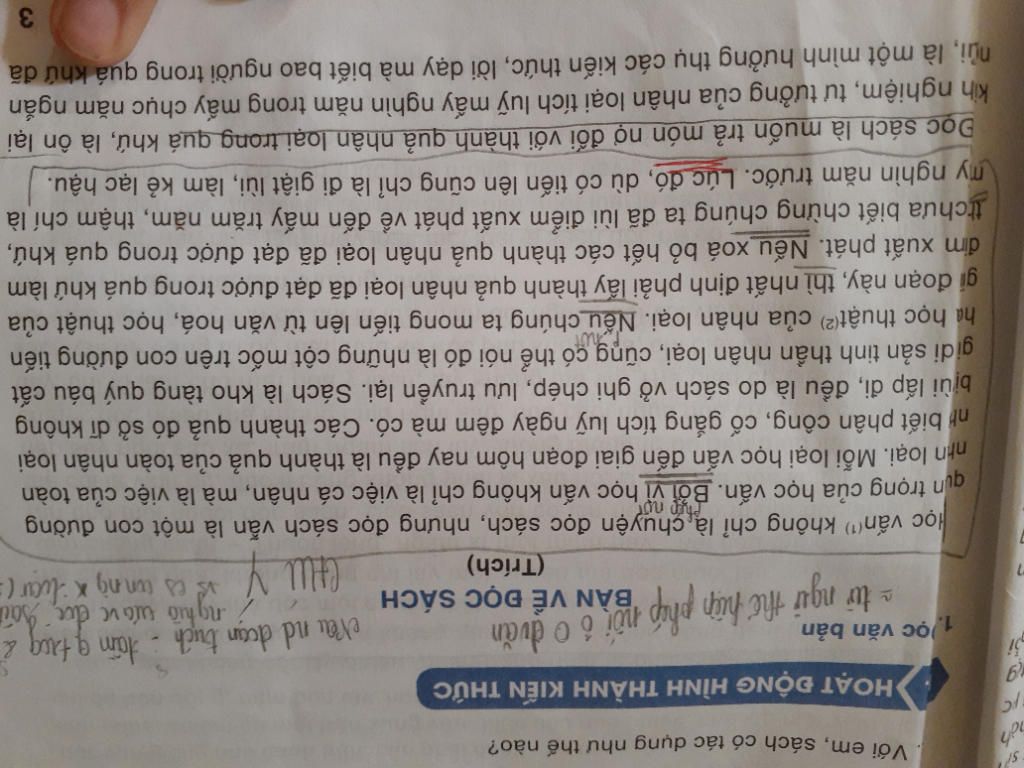 . Với em, sách có tác dụng như thế nào?
HOẠT ĐỘNG HÌNH THÀNH KIẾN THỨC
1. Đọc văn bản
= từ ngữ thể hiện phép nối
nêu nd đoạn trích
BÀN VỀ ĐỌC SÁCH
(Trích)
Học vấn⁽¹⁾ không chỉ là chuyện đọc sách, nhưng đọc sách vẫn là một con đường
phép nối
trọng của học vấn. Bởi vì học vấn không chỉ là việc cá nhân, mà là việc của toàn
loại. Mỗi loại học vấn đến giai đoạn hôm nay đều là thành quả của toàn nhân loại
biết phân công, cố gắng tích luỹ ngày đêm mà có. Các thành quả đó sở dĩ không
bị vùi lấp đi, đều là do sách vở ghi chép, lưu truyền lại. Sách là kho tàng quý báu cất
di sản tinh thần nhân loại, cũng có thể nói đó là những cột mốc trên con đường tiến
học thuật⁽²⁾ của nhân loại. Nếu chúng ta mong tiến lên từ văn hoá, học thuật của
đoạn này, thì nhất định phải lấy thành quả nhân loại đã đạt được trong quá khứ làm
xuất phát. Nếu xoá bỏ hết các thành quả nhân loại đã đạt được trong quá khứ,
chưa biết chừng chúng ta đã lùi điểm xuất phát về đến mấy trăm năm, thậm chí là
nghìn năm trước. Lúc đó, dù có tiến lên cũng chỉ là đi giật lùi, làm kẻ lạc hậu.
Đọc sách là muốn trả món nợ đối với thành quả nhân loại trong quá khứ, là ôn lại
nghiệm, tư tưởng của nhân loại tích luỹ mấy nghìn năm trong mấy chục năm ngắn
ngủi, là một mình hưởng thụ các kiến thức, lời dạy mà biết bao người trong quá khứ đã
3